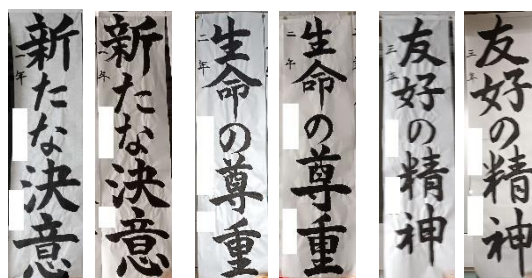 新たな決意
一年
新たな決意
一年
生命の尊重
二年
生命の尊重
二年
友好の精神
三年
友好の精神
三年